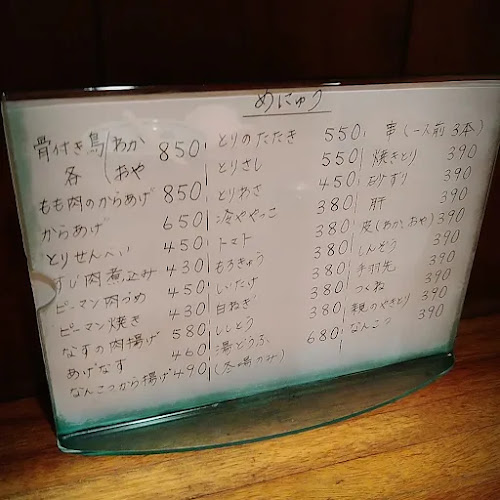 めにゅう
骨付き鳥(わか
各(おや 850
もも肉のからあげ 850
からあげ 650
とりせんべい 450
すじ肉煮込み 430
ピーマン肉づめ 450
ピーマン焼き 430
なすの肉揚げ 580
あげなす 460
なんこつから揚げ 490
とりのたたき 550
とりさし 550
とりわさ 450
冷ややっこ 380
トマト 380
もろきゅう 380
しいたけ 380
白ねぎ 380
ししとう 380
湯どうふ 680
(冬場のみ)
串(一人前3本)
焼きとり 390
砂ずり 390
肝 390
皮(わか、おや) 390
しんぞう 390
手羽先 390
つくね 390
親のやきとり 390
なんこつ 390